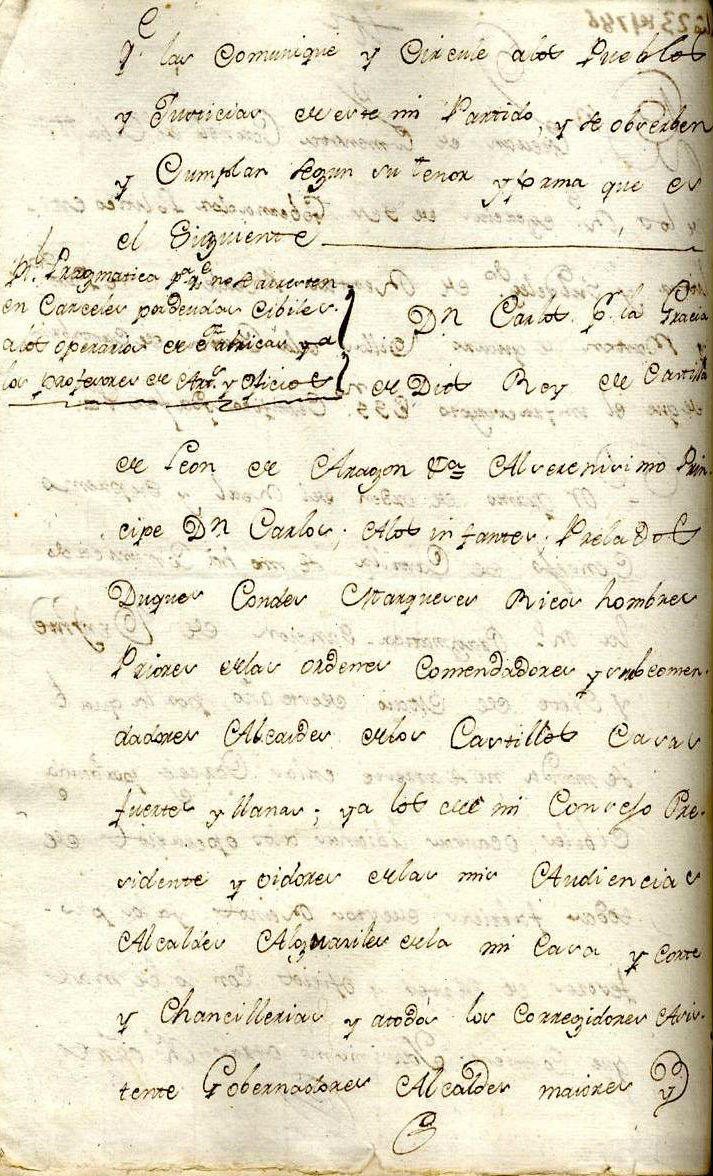 q.e las Comunique y Circule alos Pueblos
y Justicias de este mi Partido, y se obserben
y Cumplan segun su tenor y forma que es
el Siguiente
R.l Pragmatica p.a q.e no se arresten
en Carceles por deudas Cibiles
alos operarios de Fabricas y a
los profesores de Art.s y Oficios
Dn Carlos p.r la Gracia
de Dios Rey de Castilla
de Leon de Aragon &a Al serenisimo Prin-
cipe Dn Carlos; Alos infantes; Prelados
Duques Condes Marqueses Ricos hombres
Priores de las ordenes Comendadores y subcomen-
dadores Alcaides de los Castillos Casas
fuertes y llanas; ya los de mi Consejo Pre-
sidente y oidores de las mis Audiencias
Alcaldes Alguaciles de la mi Casa y Corte
y Chancillerias y atodos los Corregidores Asis-
tente Gobernadores Alcaldes maiores y